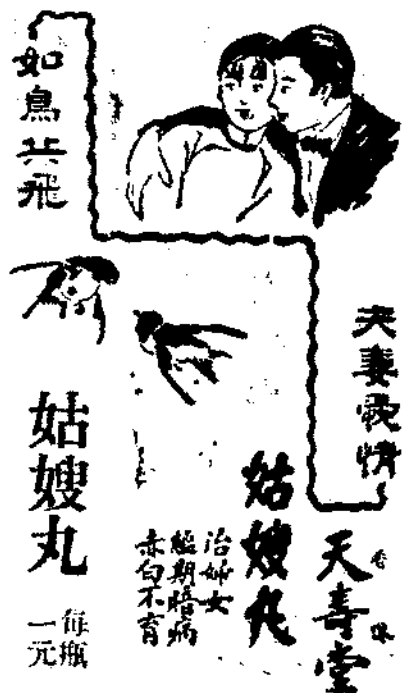 夫妻愛情
如鳥共飛
香港
天壽堂
姑嫂丸
治婦女
經期暗病
赤白不育
姑嫂丸
每瓶
一元